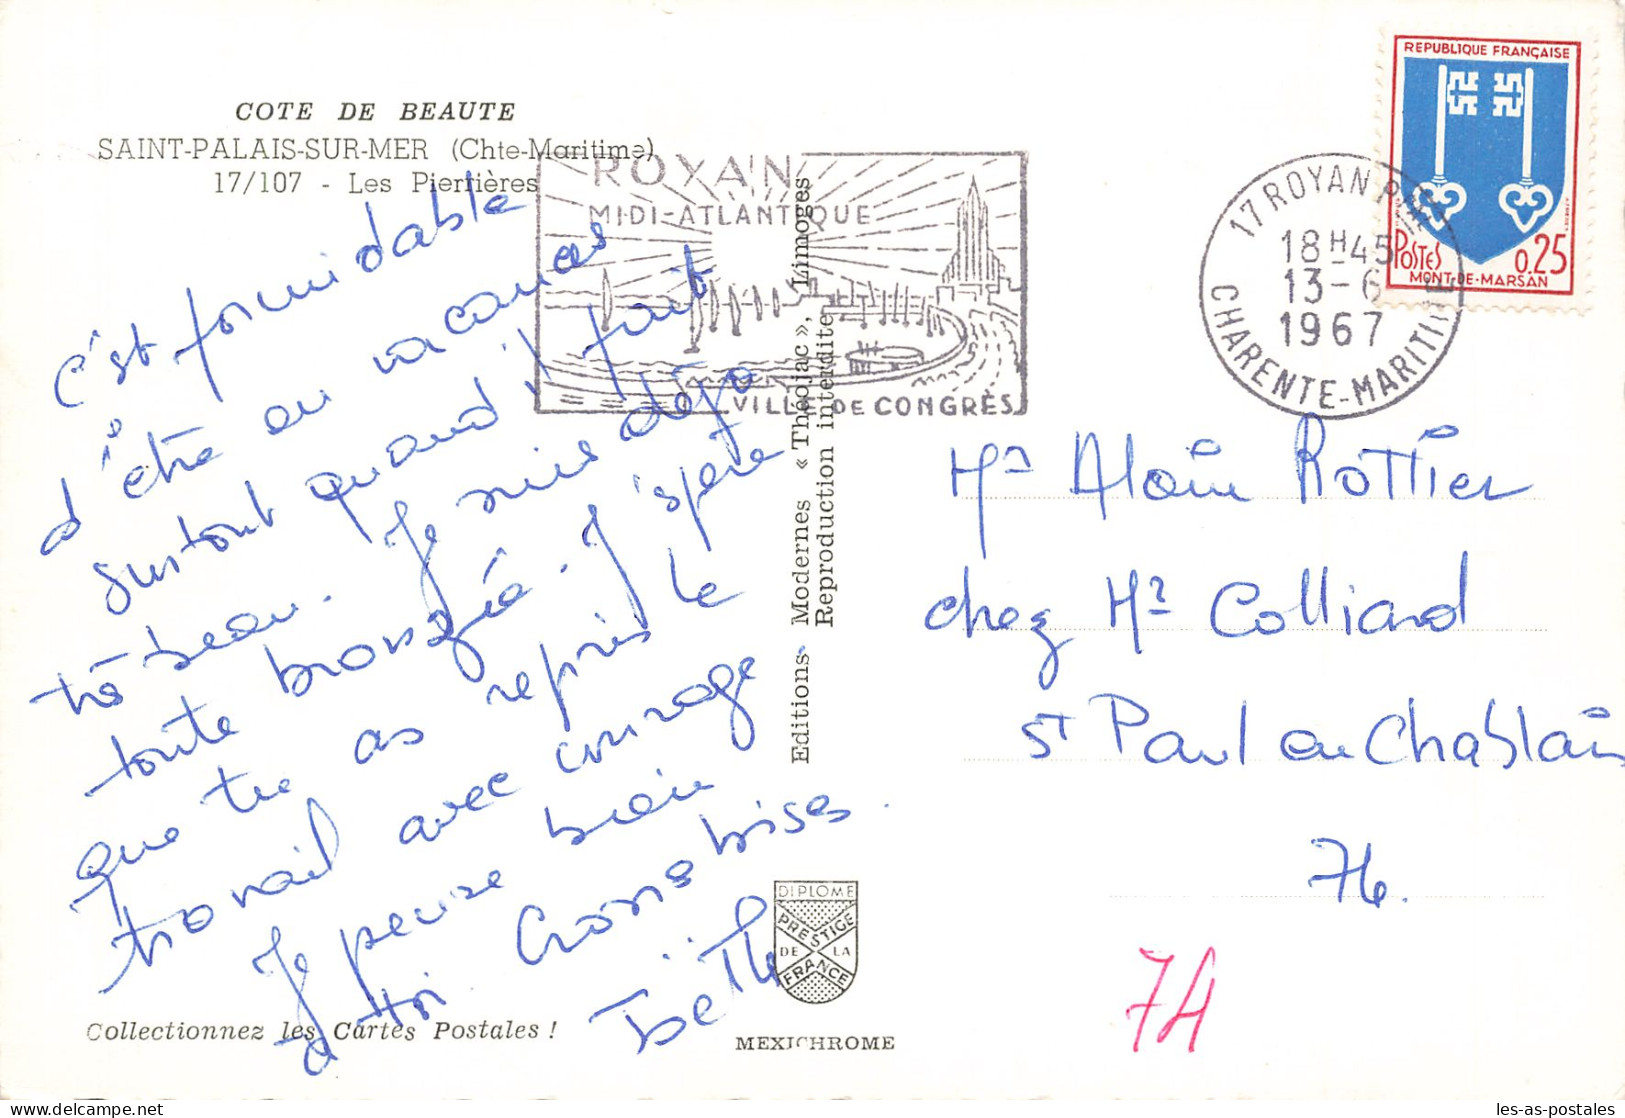 COTE DE BEAUTE
SAINT-PALAIS-SUR-MER (Chte-Maritime)
17/107 - Les Pierrières
c'est formidable
d'être en vacances
surtout quand il fait
très beau. Je suis déjà
toute bronzée. J'espère
que tu as repris le
travail avec courage
Je pense bien
à toi Grosses bises.
Beth
Collectionnez les Cartes Postales !
Editions Modernes « Théojac », Limoges
Reproduction interdite
DIPLOME
PRESTIGE
DE LA
FRANCE
MEXICHROME
ROYAN
MIDI-ATLANTIQUE
VILLE DE CONGRÈS
17 ROYAN
18H45
13-6
1967
CHARENTE-MARITIME
REPUBLIQUE FRANÇAISE
POSTES
0,25
MONT-DE-MARSAN
Mr Alain Rottier
chez Mr Colliard
St Paul en Chablais
74.
74
les-as-postales.com